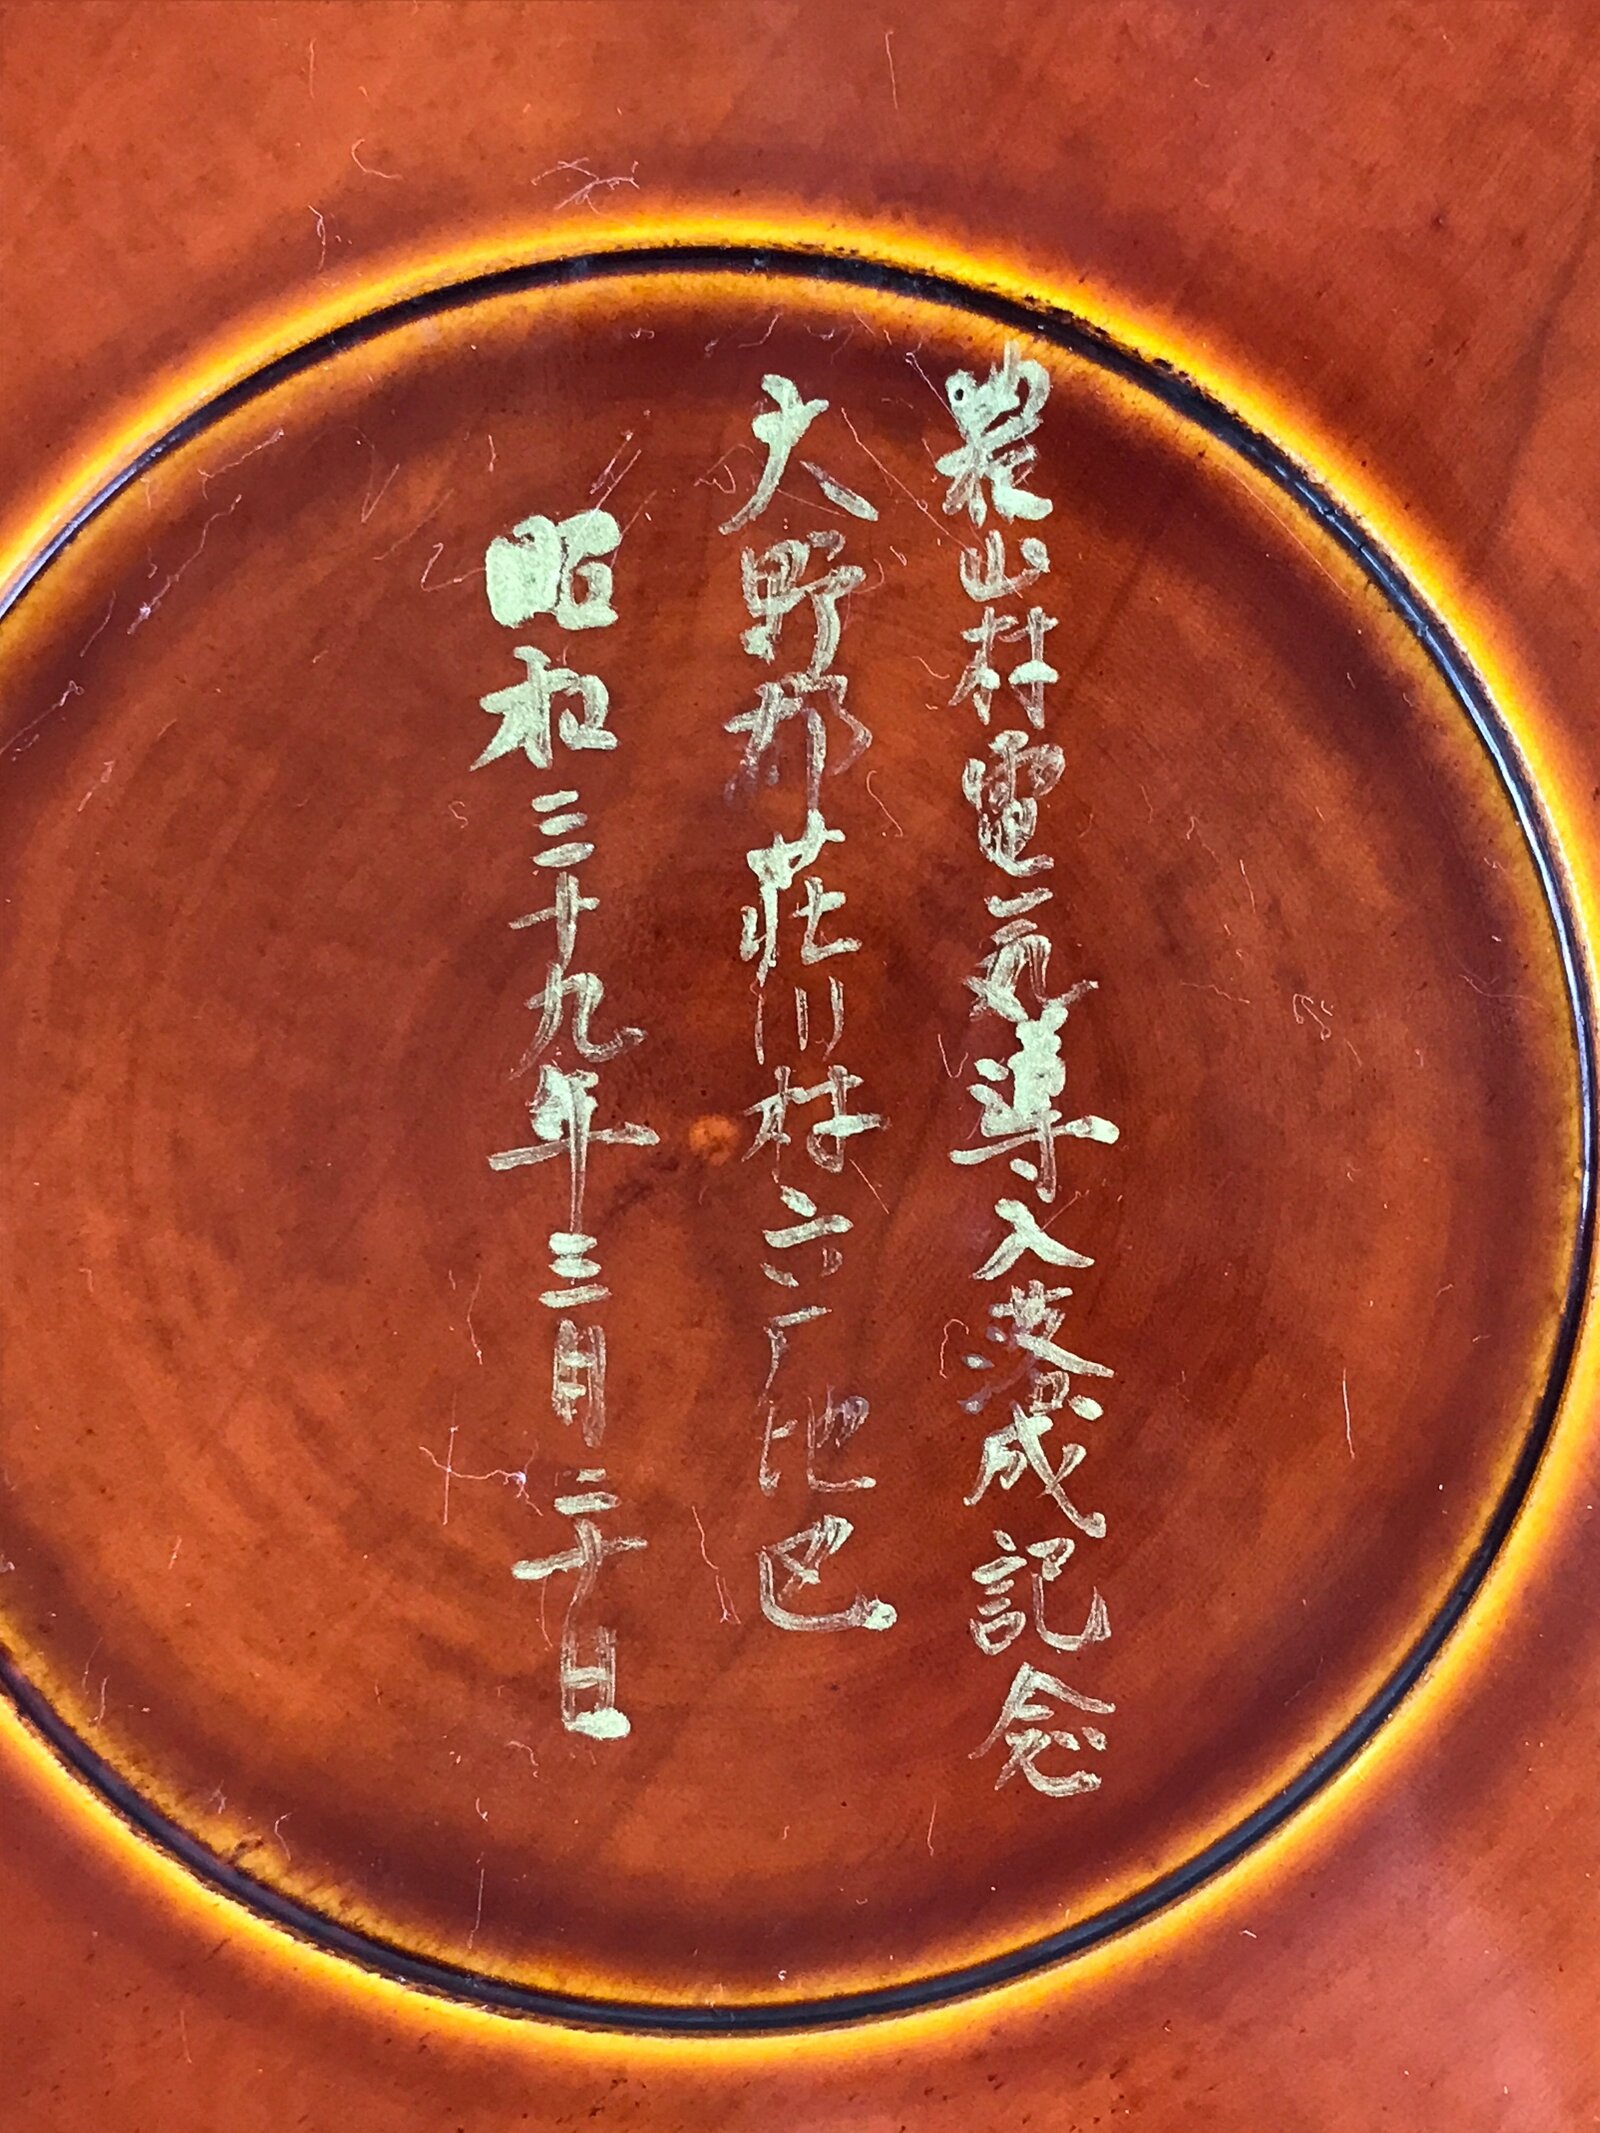 農山村電気導入落成記念
大野郡荘川村六厂地区
昭和三十九年三月二十日